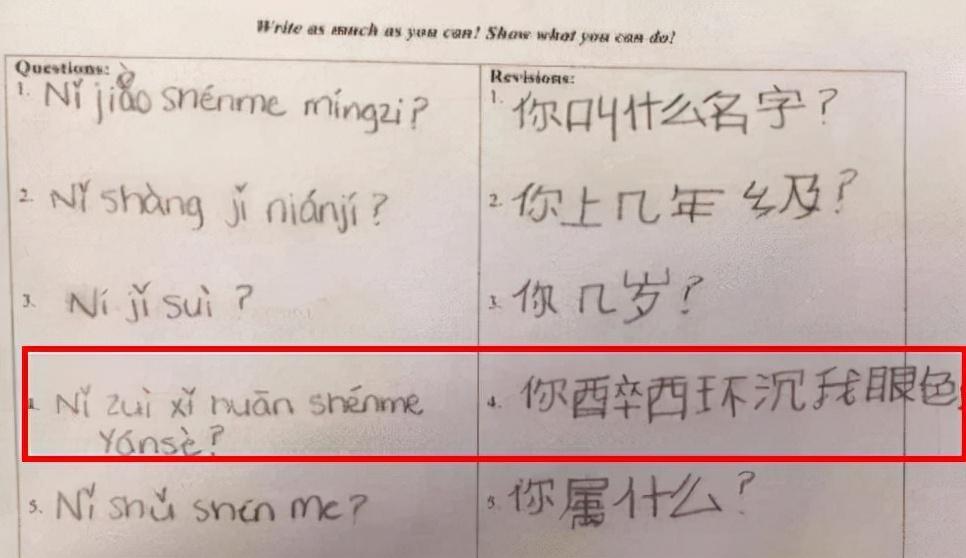 Write as much as you can! Show what you can do!
Questions:
1. Nǐ jiào shénme míngzi?
2. Nǐ shàng jǐ niánjí?
3. Ní jǐ suì ?
Nǐ zuì xǐ huān shénme
Yánsè?
5. Nǐ shǔ shén me?
Revisions:
1. 你叫什么名字?
2. 你上几年级?
3. 你几岁?
4. 你酔西环沉我眼色
5. 你属什么?